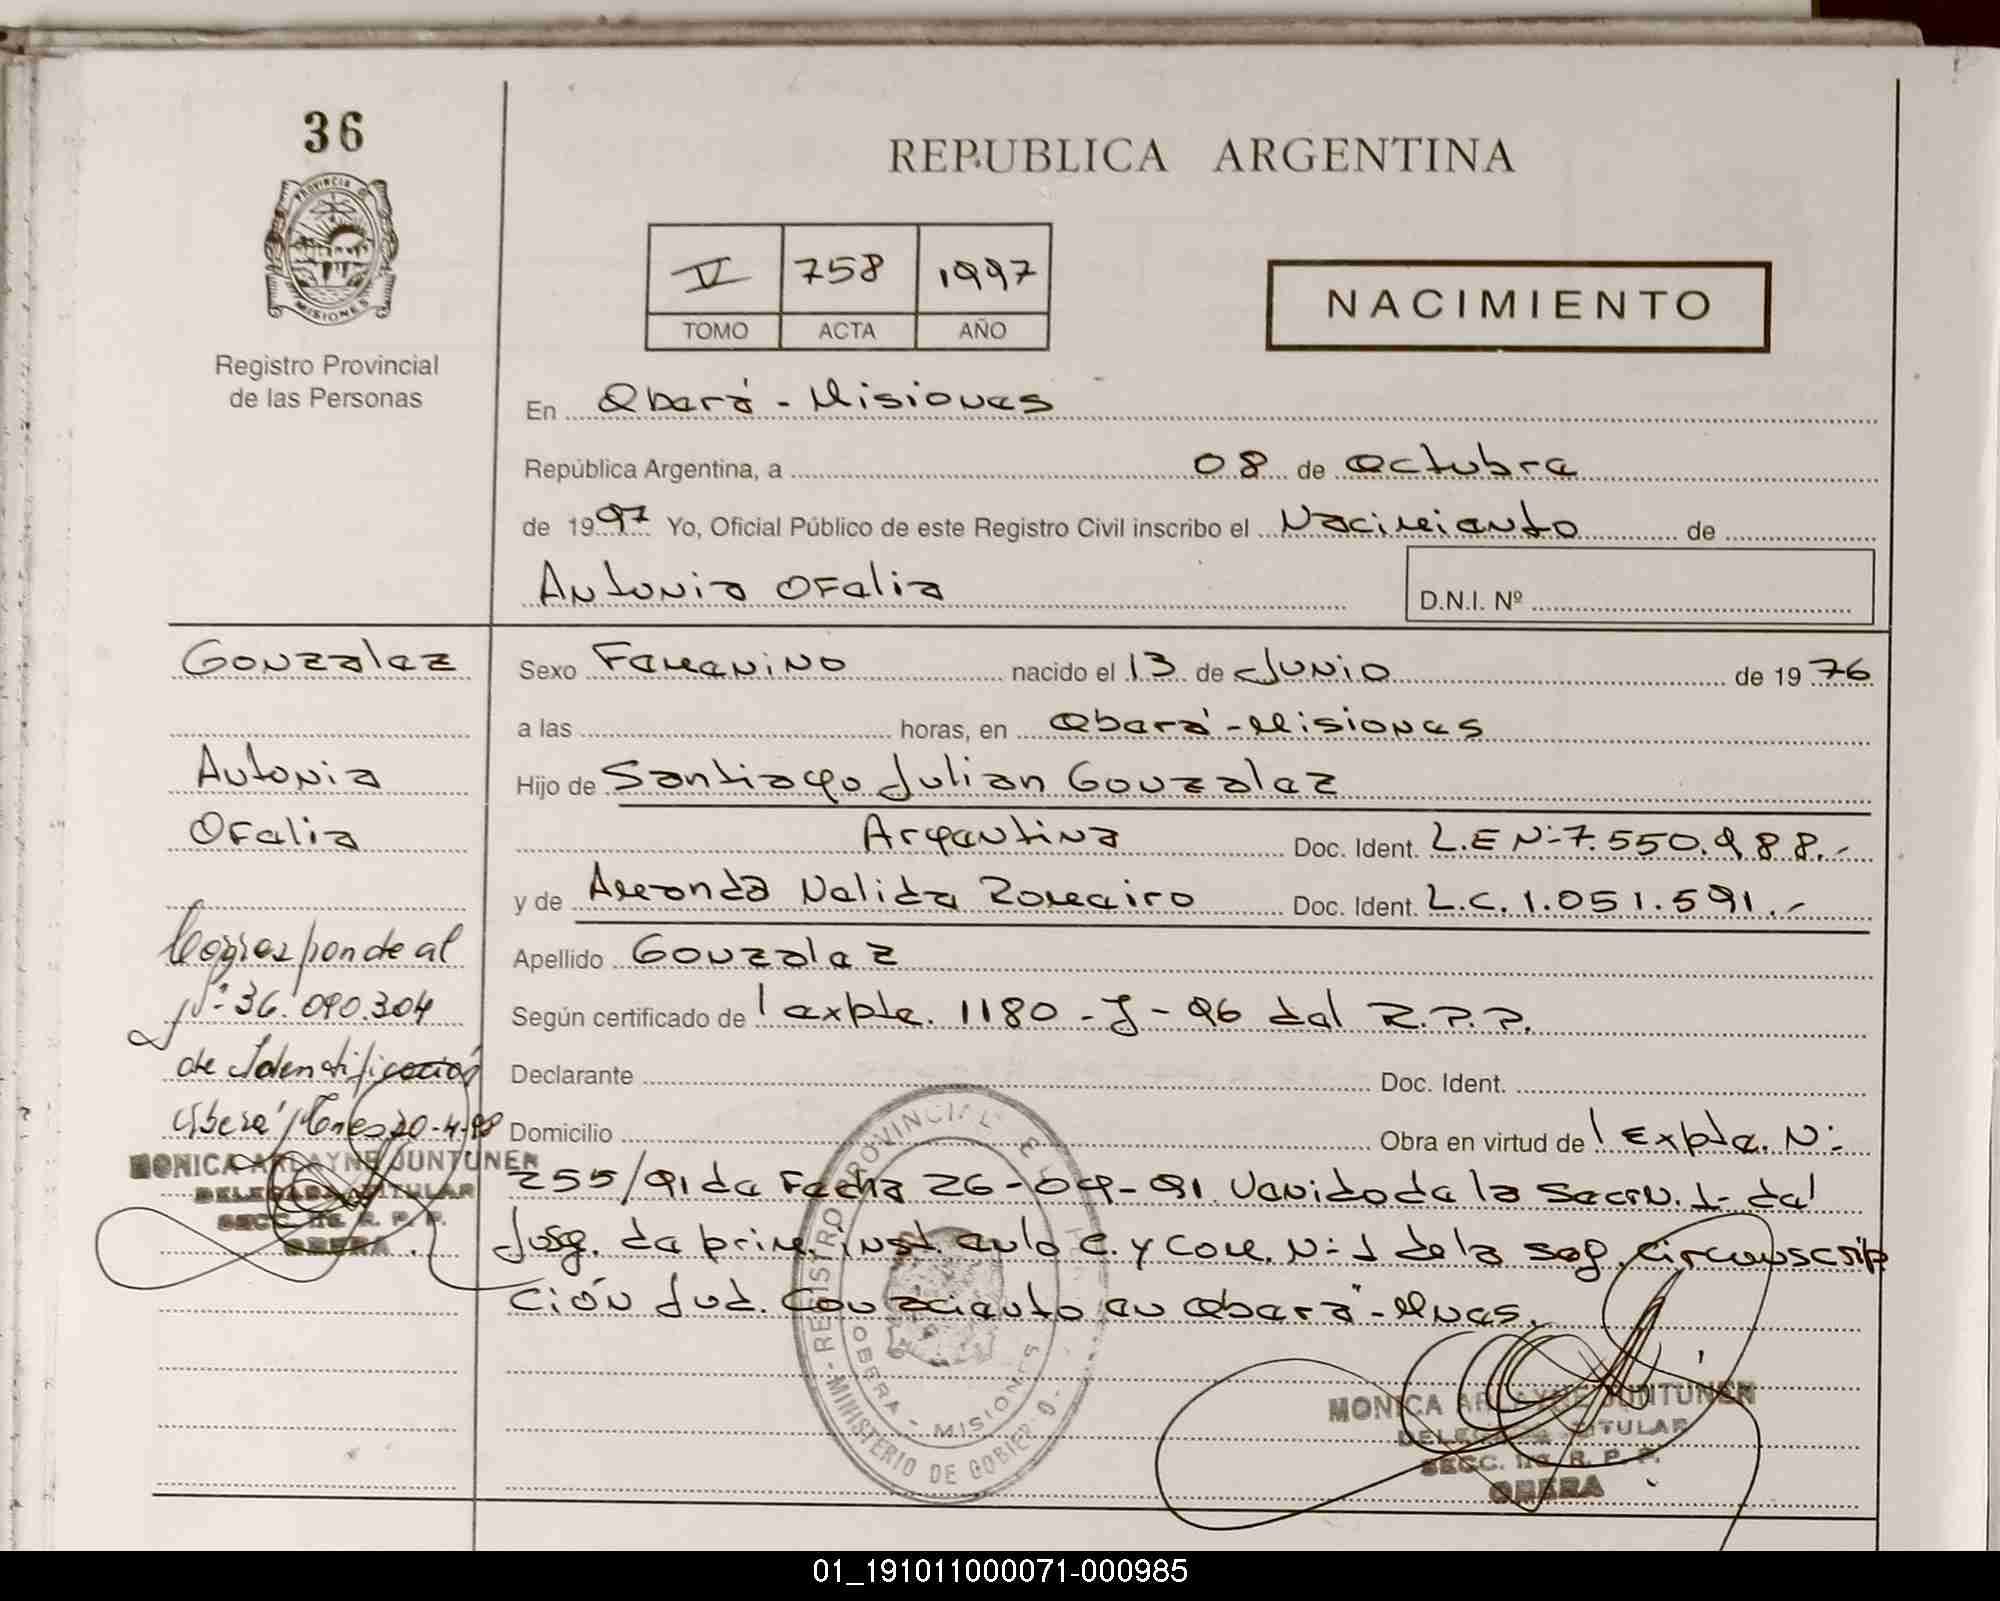 36
PROVINCIA D
MISIONES
Registro Provincial
de las Personas
REPUBLICA ARGENTINA
V 758 1997
TOMO ACTA AÑO
NACIMIENTO
En Oberá - Misiones
República Argentina, a 08 de Octubre
de 1997 Yo, Oficial Público de este Registro Civil inscribo el Nacimiento de
Antonia Ofelia
D.N.I. Nº
Gonzalez
Antonia
Ofelia
Corresponde al
Nº 36.090.304
de Identificación
Oberá Mnes 20-4-98
MONICA ARLAYNE JUNTUNEN
DELEGADA TITULAR
SECC. R. P. P.
OBERA
Sexo Femenino nacido el 13 de Junio de 1976
a las horas, en Oberá - Misiones
Hijo de Santiago Julian Gonzalez
Argentina Doc. Ident. L.E Nº 7.550.988.-
y de Amanda Nelida Romeiro Doc. Ident. L.C. 1.051.591.-
Apellido Gonzalez
Según certificado de l expte. 1180 - J - 96 del R.P.P.
Declarante Doc. Ident.
Domicilio Obra en virtud de l Expte. Nº
255/91 de Fecha 26-04-91 Venido de la Secrn. 1 del
Jusg. de prim. inst. en lo C. y Com. Nº 1 de la seg. circunscrip
ción Jud. Con aciento en Oberá - Mnes.
REGISTRO PROVINCIAL
OBERA - MISIONES
MINISTERIO DE GOBIERNO
MONICA ARLAYNE JUNTUNEN
DELEGADA TITULAR
SECC. R. P. P.
OBERA
01_191011000071-000985